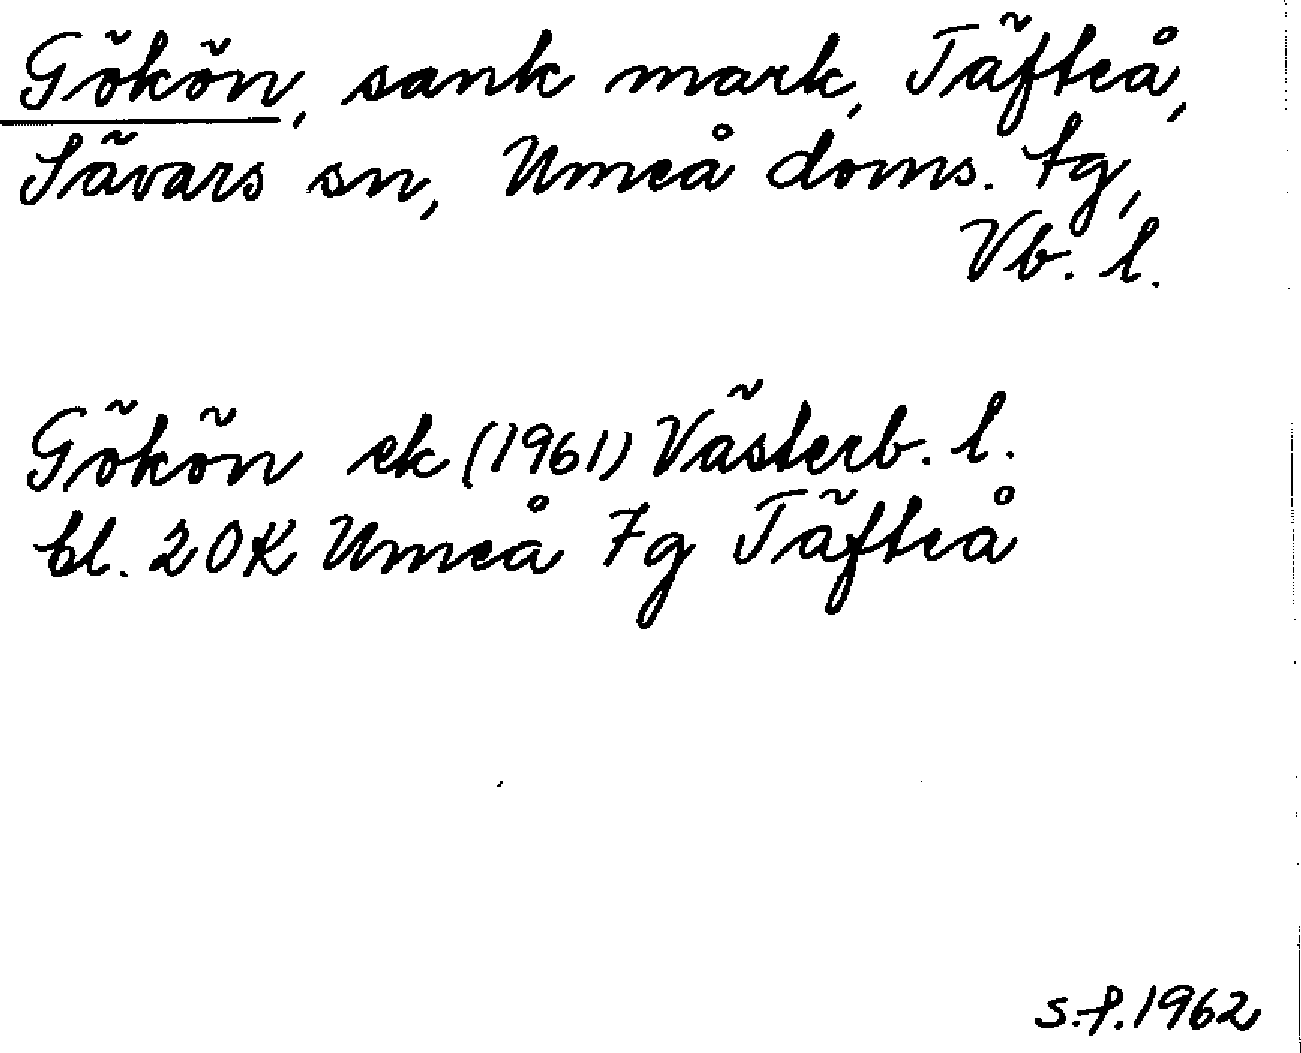 Gökön, sank mark, Täfteå,
Sävars sn, Umeå doms. tg,
Vb. l.
Gökön ek (1961) Västerb. l.
bl. 20K Umeå 7g Täfteå
s.f. 1962